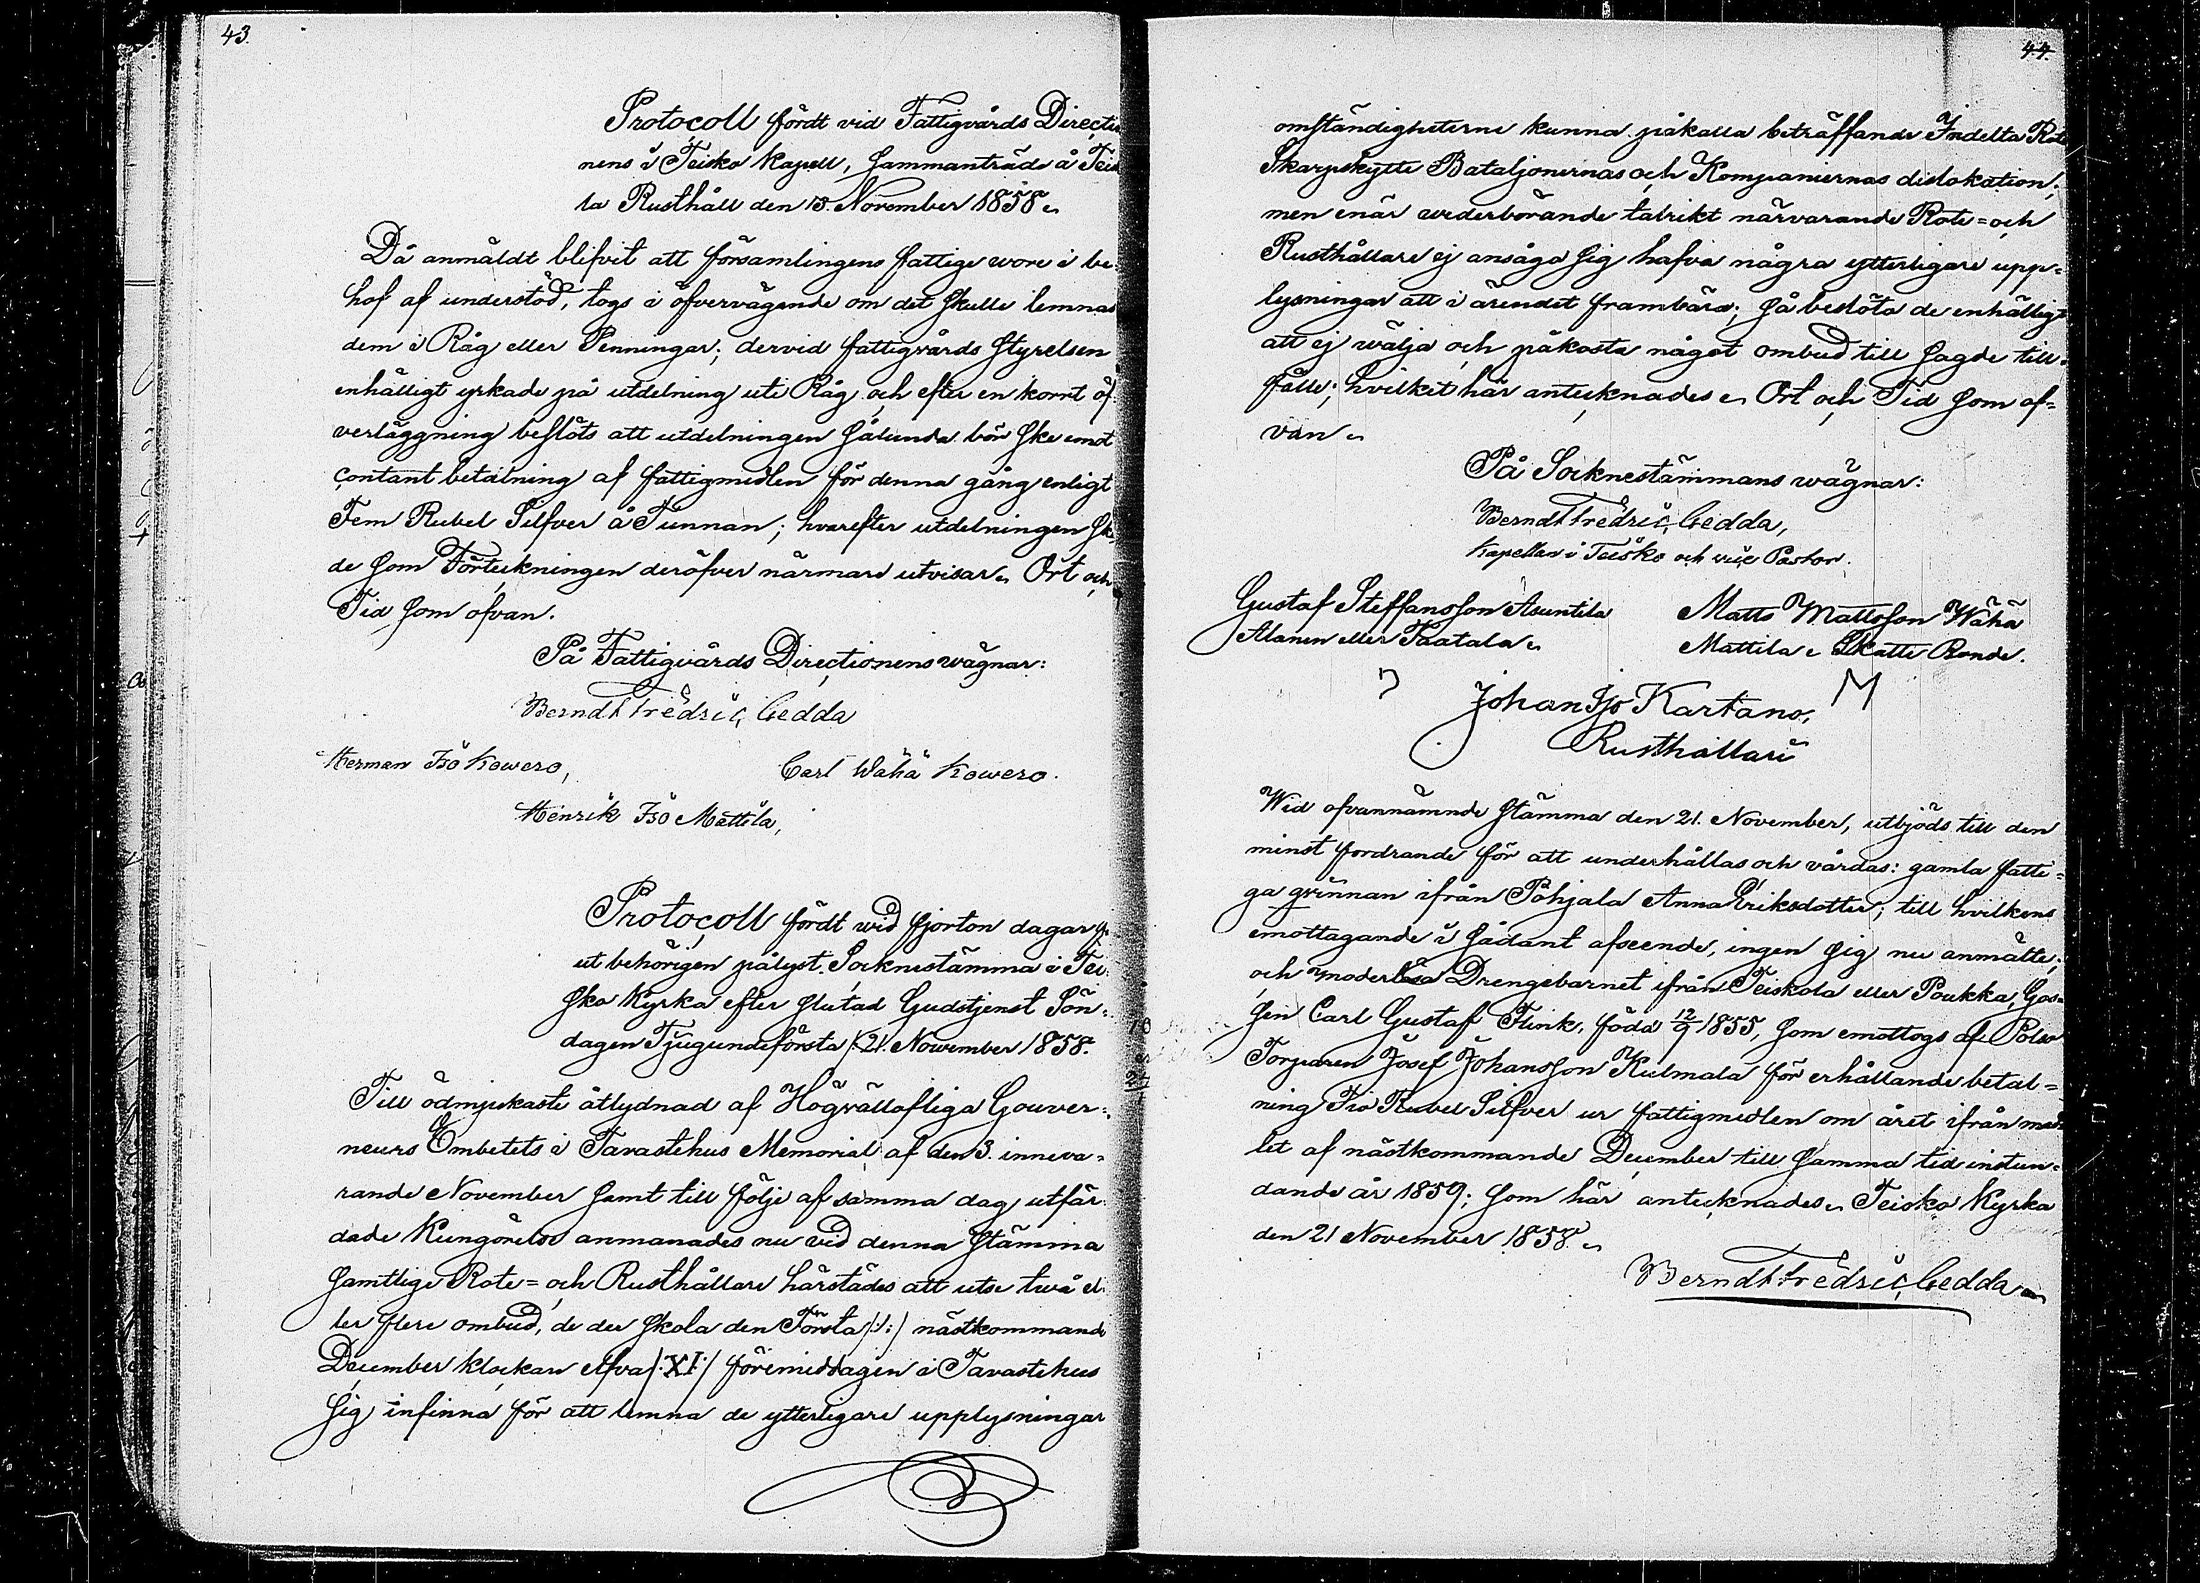 43.
Protocoll fördt vid Fattigvårds Directio
nens i Teisko Kapell, sammanträde å Teis
la Rusthåll den 13. November 1858.
Då anmäldt blifvit att församlingens fattige wore i be-
hof af understöd, togs i öfvervägende om det skulle lemnas
dem i Råg eller Penningar; dervid fattigvårds styrelsen
enhälligt yrkade på utdelning uti Råg, och efter en kornt öf
verläggning beslöts att utdelningen sålunda bör ske emot
contant betalning af fattigmedlen för denna gång enligt
Fem Rubel Silfver å Tunnan; hvarefter utdelningen sk
de som Förteckningen deröfver närmare utvisar. Ort och
Tid som ofvan.
På Fattigvårds Directionens wägnar:
Berndt Fredric Gedda
Herman Iso Kowero,
Carl Wähä Kowero.
Henrik Iso Mattila,
Protocoll fördt wid fjorton dagar fö
ut behörigen pålyst. Socknestämma i Tei-
sko Kyrka efter slutad Gudstjenst Sön-
dagen Tjugundeförsta /:21. November 1858.
Till ödmjukaste åtlydnad af Högvällofliga Gouver-
neurs Embetets i Tavastehus Memorial af den 3. inneva-
rande November samt till följe af samma dag utfär-
dade Kungörelse anmanades nu vid denna stämma
samtlige Rote= och Rusthållare härstädes att utse twå el-
ler flere ombud, de der skola den Första /:1:/ nästkommande
December klockan elfva /:XI:/ förmiddagen i Tavastehus
sig infinna för att lemna de ytterligare upplysningar
44.
omständigheterne kunna påkalla beträffande Indelta Rote
Skarpskytte Bataljonernas och Kompaniernas dislokation;
men enär wederbörande talrikt närvarande Rote= och
Rusthållare ej ansågo sig hafva några ytterligare upp=
lysningar att i ärendet frambära; så beslöto de enhälligt
att ej wälja och påkosta något ombud till sagde till-
fälle; hvilket här antecknades. Ort och Tid som of=
van.
På Socknestämmans wägnar:
Berndt Fredric Gedda,
Kapellan i Teisko och vice Pastor.
Gustaf Steffansson Asuntila
Matts Mattsson Wähä
Alanen eller Taatala.
Mattila. Skatte Bonde.
Johan Iso Kartano,
Rusthållare
Wid ofvannämnde stämma den 21. November, utbjöds till den
minst fordrande för att underhållas och vårdas: gamla fatti=
ga qvinnan ifrån Pohjala Anna Eriksdotter; till hvilkens
emottagande i sådant afseende, ingen sig nu anmälte;
och moderlösa Drengebarnet ifrån Teiskola eller Poukka, Gos-
sen Carl Gustaf Flink, född 12/9 1855, som emottogs af Polso
Torparen Josef Johansson Kulmala för erhållande betal=
ning Tio Rubel Silfver ur fattigmedlen om året ifrån med
let af nästkommande December till samma tid instun-
dande år 1859; som här antecknades. Teisko Kyrka
den 21 November 1858.
Berndt Fredric Gedda